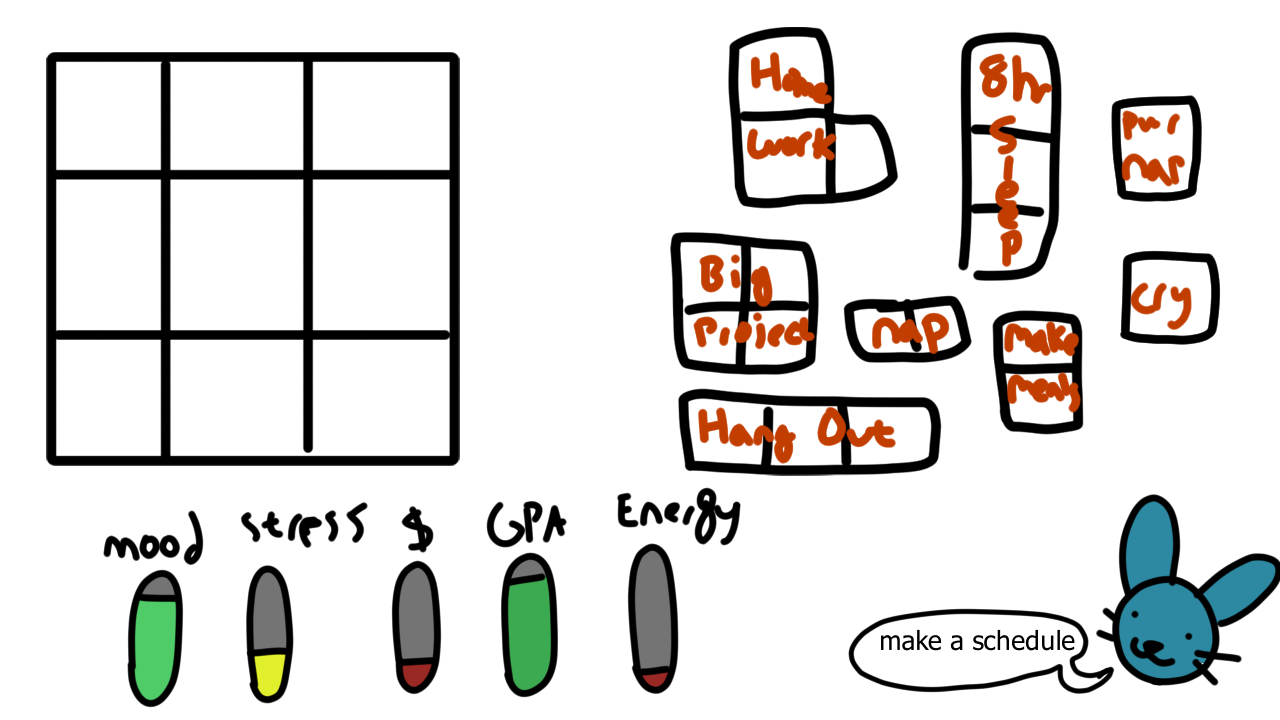 Home
work
8hr
Sleep
pwr
nap
Big
Project
nap
make
meal
cry
Hang Out
mood
stress
$
GPA
Energy
make a schedule